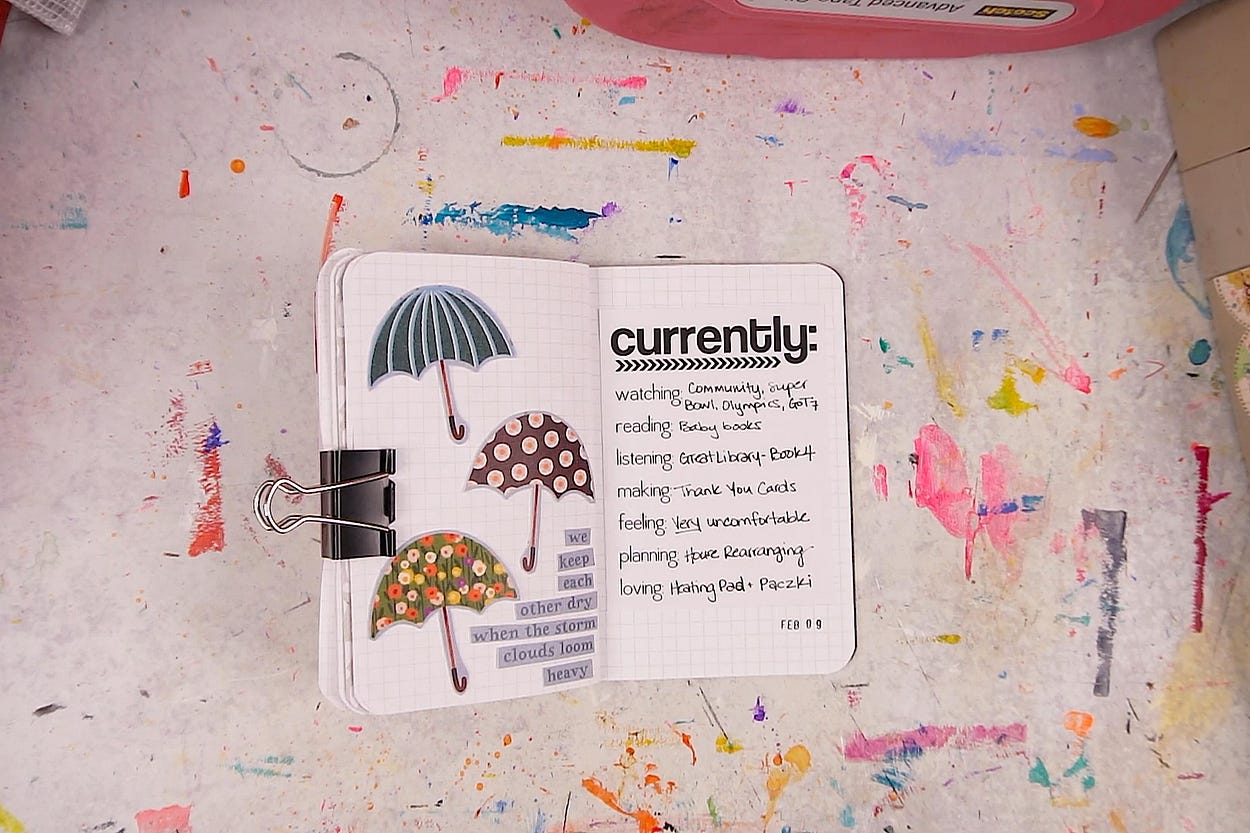 Scotch
Advanced Tape Gl
we
keep
each
other dry
when the storm
clouds loom
heavy
currently:
watching: Community, Super
Bowl, Olympics, GoT7
reading: Baby books
listening: Great Library - Book 4
making: Thank You Cards
feeling: Very uncomfortable
planning: House Rearranging
loving: Heating Pad + Pączki
FEB 09